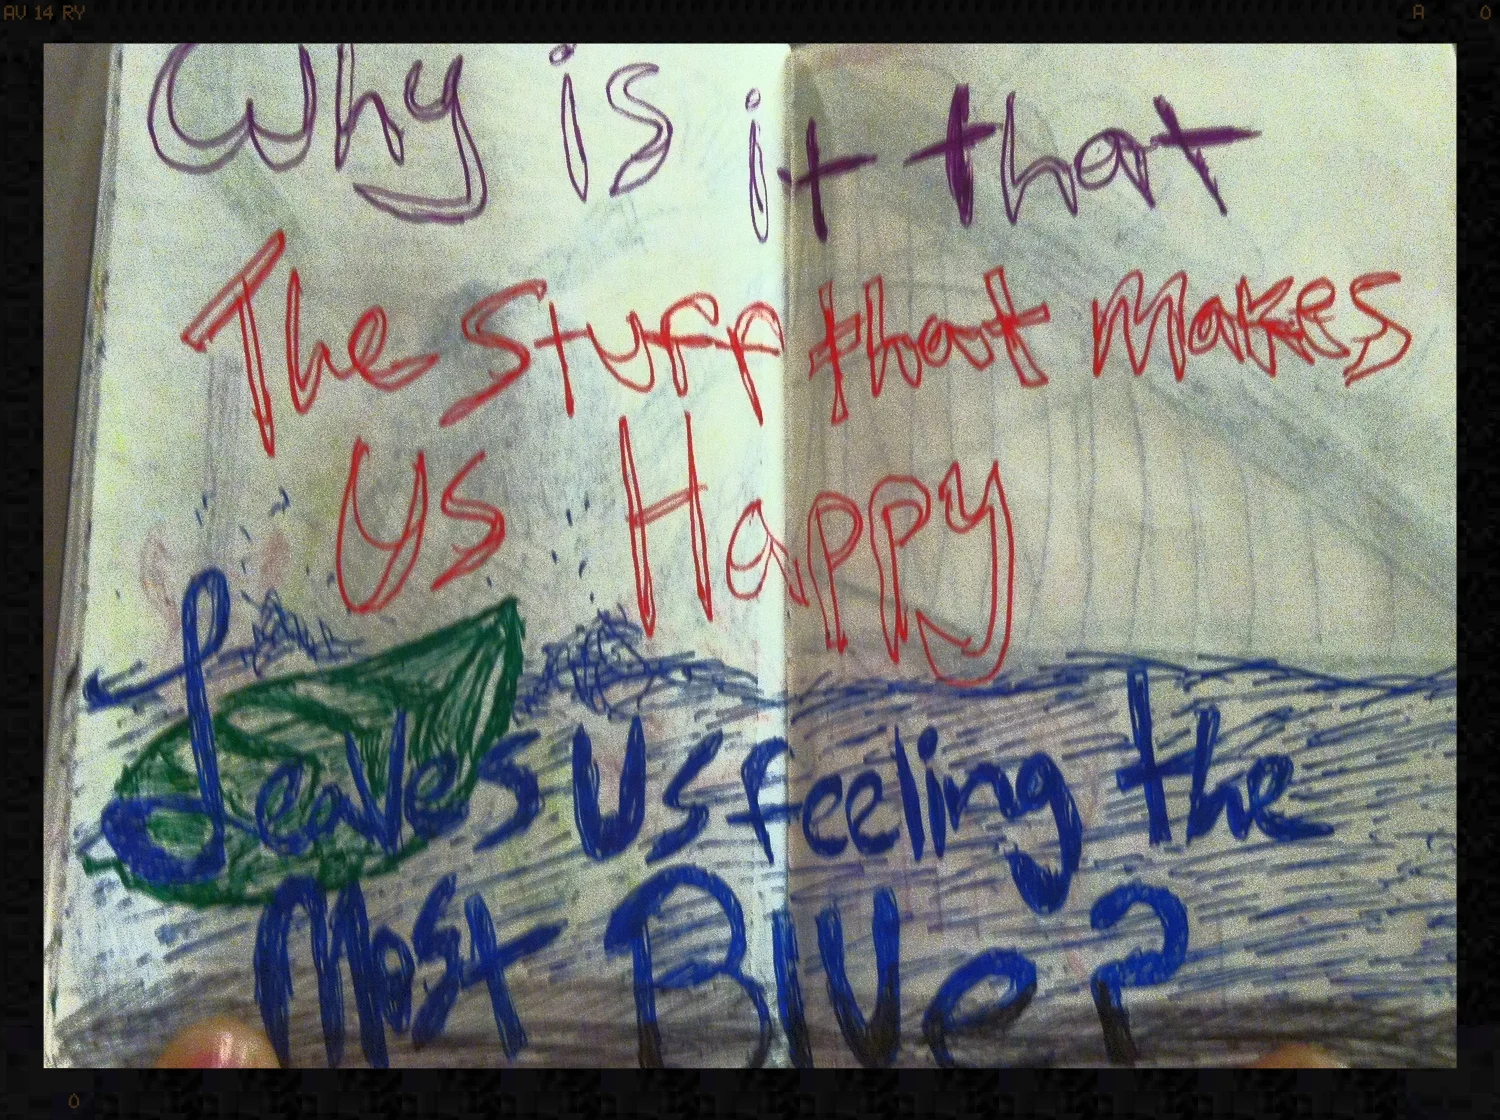 AV 14 RY
A O
Why is it that
The stuff that makes
us Happy
Leaves us feeling the
Most Blue?
O